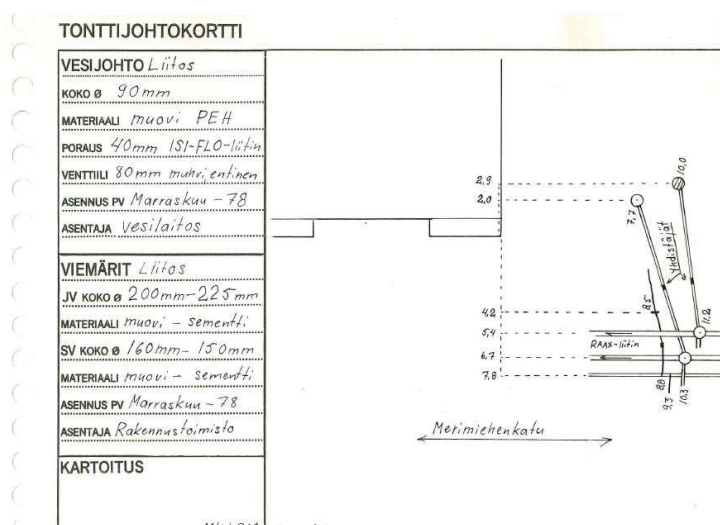 TONTTIJOHTOKORTTI
VESIJOHTO Liitos
KOKO Ø 90mm
MATERIAALI muovi PEH
PORAUS 40mm ISI-FLO-liitin
VENTTIILI 80mm muhvi, entinen
ASENNUS PV Marraskuu - 78
ASENTAJA Vesilaitos
VIEMÄRIT Liitos
JV KOKO Ø 200mm-225mm
MATERIAALI muovi - sementti
SV KOKO Ø 160mm-150mm
MATERIAALI muovi - sementti
ASENNUS PV Marraskuu - 78
ASENTAJA Rakennustoimisto
KARTOITUS
2,9
10,0
2,0
7,7
Yhdistäjät
8,5
4,2
11,2
5,4
RAAX-liitin
6,7
7,8
8,8
9,3
10,3
Merimiehenkatu